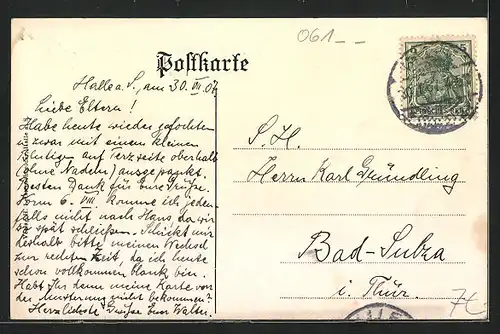 061--
Postkarte
Halle a. S., am 30. VII. 07.
Liebe Eltern!
Habe heute wieder gefochten
zwar mit einem kleinen
Blutigen auf Terzseite oberhalb
(ohne Nadeln) ausgepaukt.
Besten Dank für Eure Grüße.
Vorm 6. VIII komme ich jeden-
falls nicht nach Haus, da wir
so spät schließen. Schickt mir
deshalb bitte meinen Wechsel
zur rechten Zeit, da ich heute
schon vollkommen blank bin.
Habt Ihr denn meine Karte von
der Musterung nicht bekommen?
Herzlichste Grüße Euer Walter.
S. H.
Herrn Karl Gründling
Bad-Sulza
i. Thür.